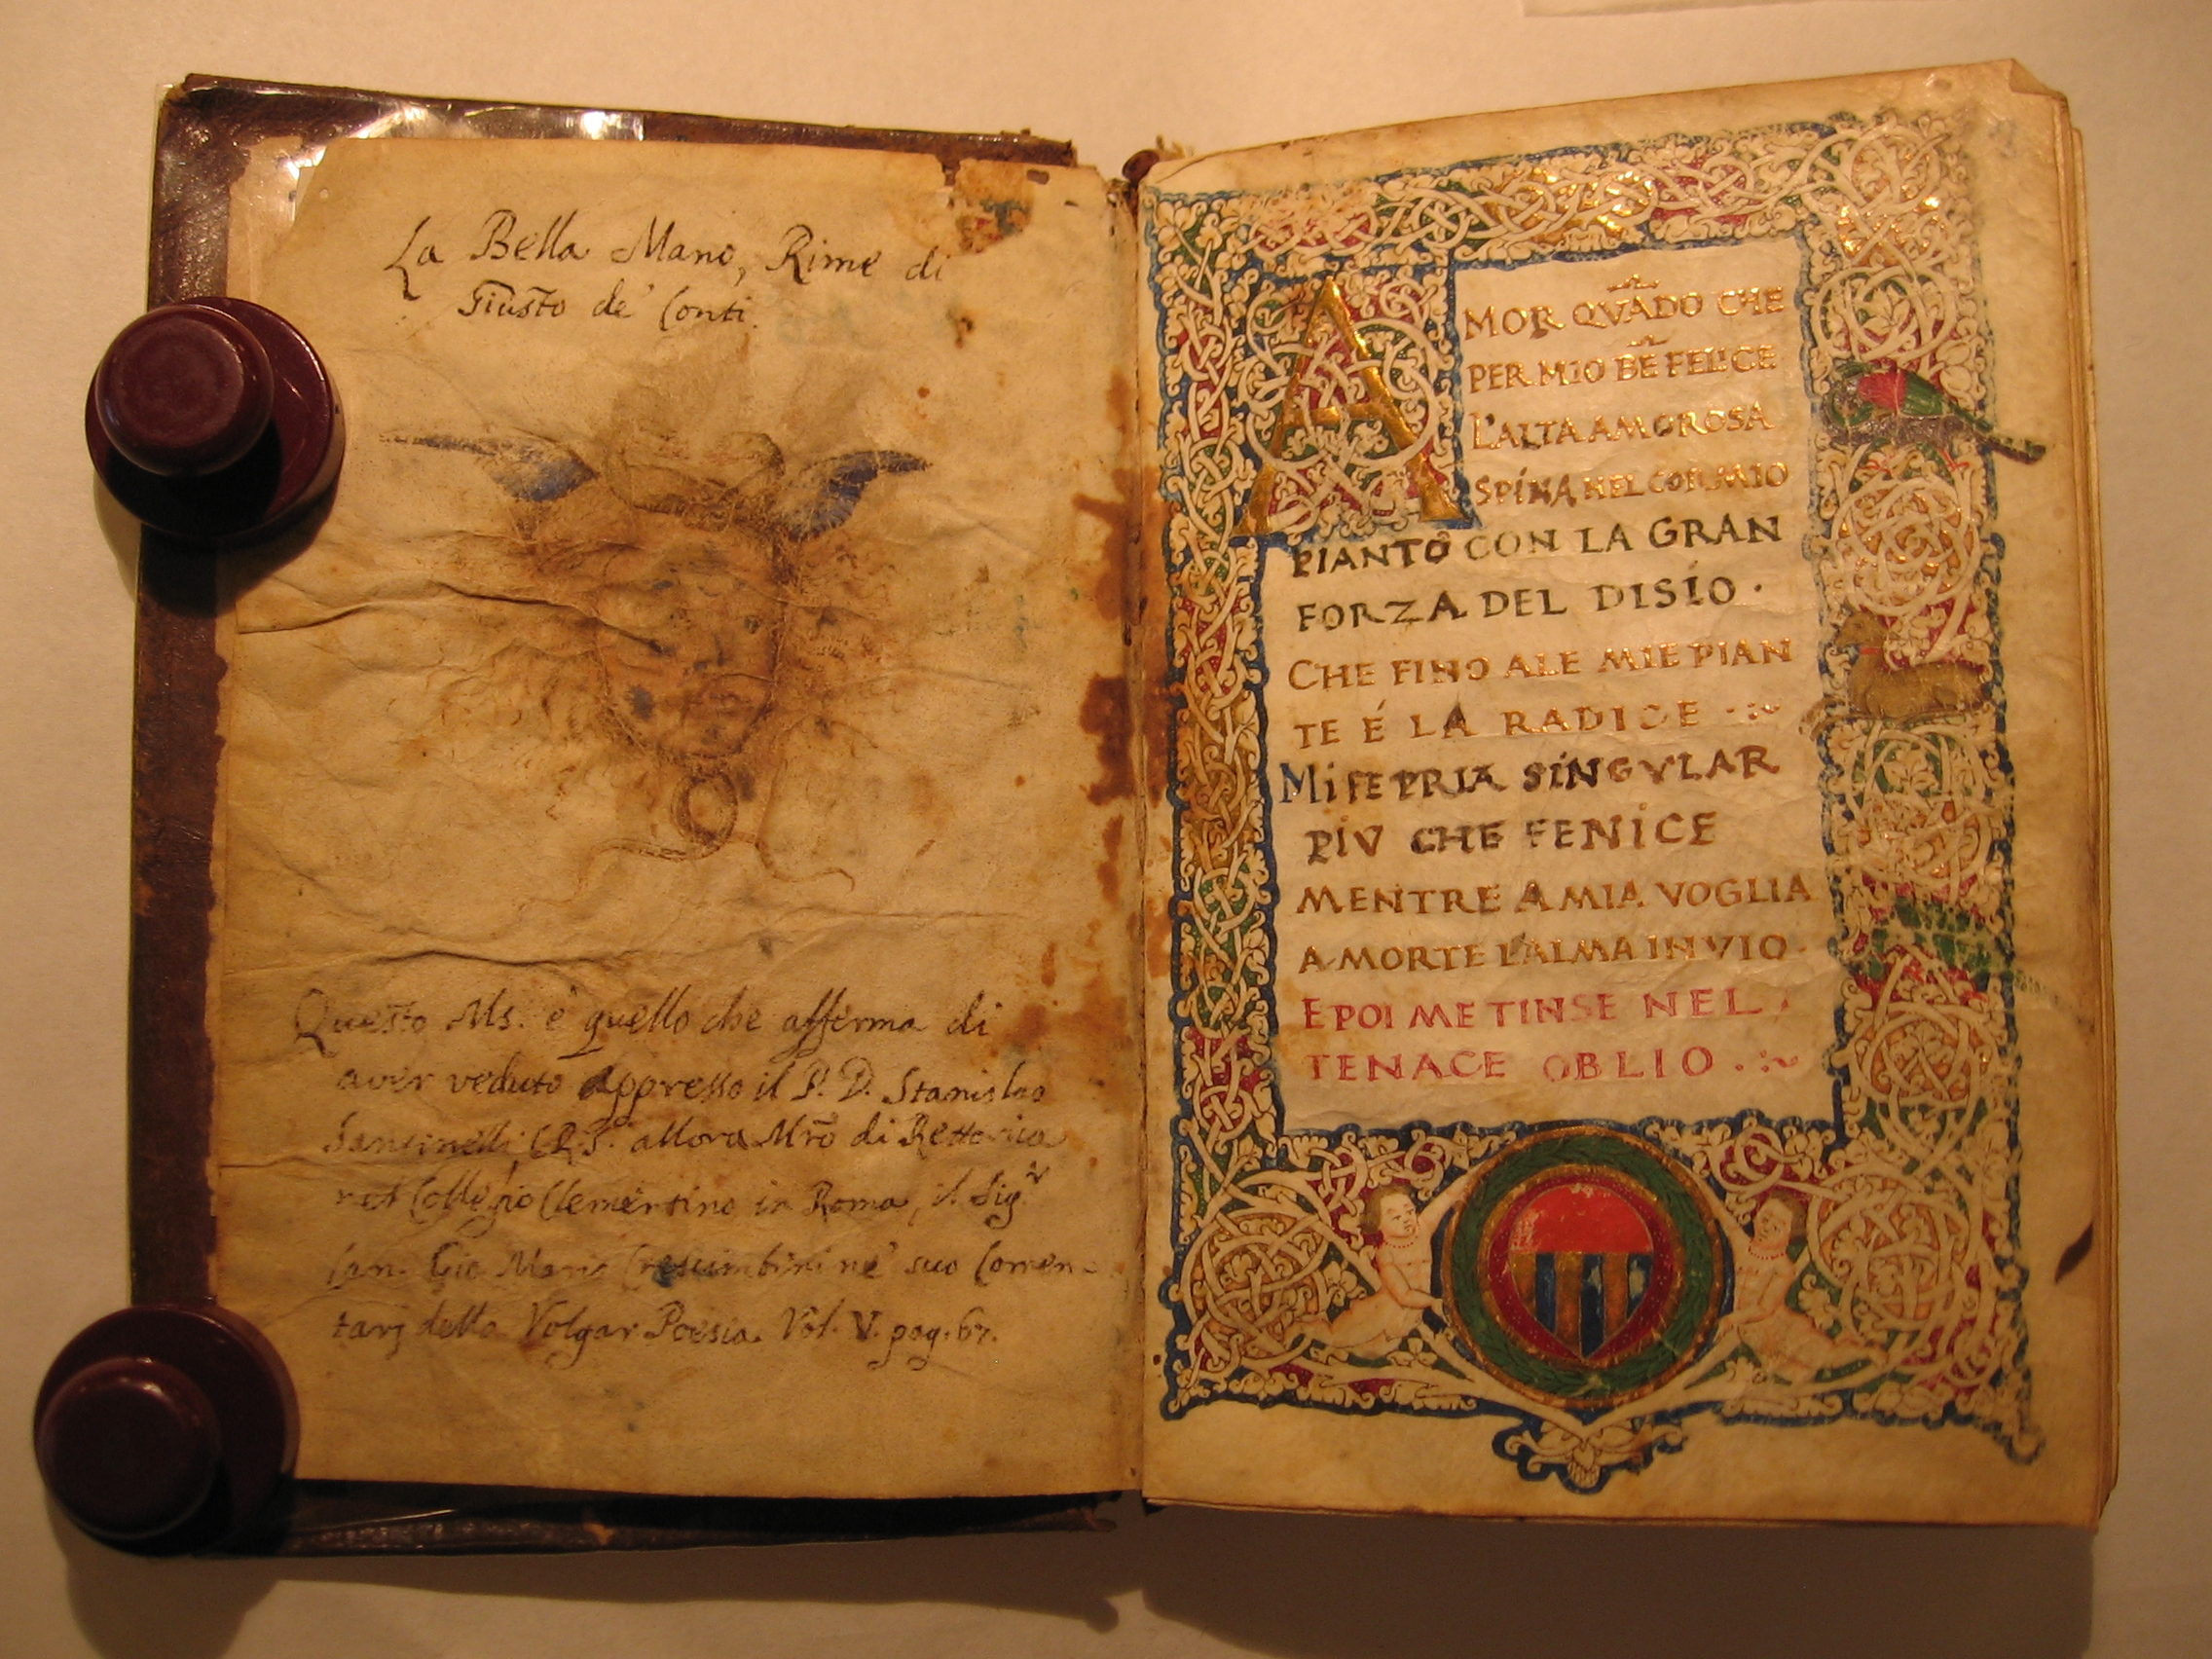 La Bella Mano, Rime di
Giusto de' Conti.
Questo Ms. è quello che afferma di
aver veduto appresso il P. D. Stanislao
Santinelli C.R.S. allora Mrõ di Rettorica
nel Collegio Clementino in Roma, il Sigr
Can. Gio Mario Crescimbini ne' suo Comen-
tarj della Volgar Poesia. Vol. V. pag. 67.
AMOR QVADO CHE
PER MIO BE FELICE
L'ALTA AMOROSA
SPINA NEL COR MIO
PIANTO CON LA GRAN
FORZA DEL DISIO ·
CHE FINO ALE MIE PIAN
TE É LA RADICE
MI FE PRIA SINGVLAR
PIV CHE FENICE
MENTRE A MIA VOGLIA
A MORTE L'ALMA INVIO ·
E POI ME TINSE NEL
TENACE OBLIO